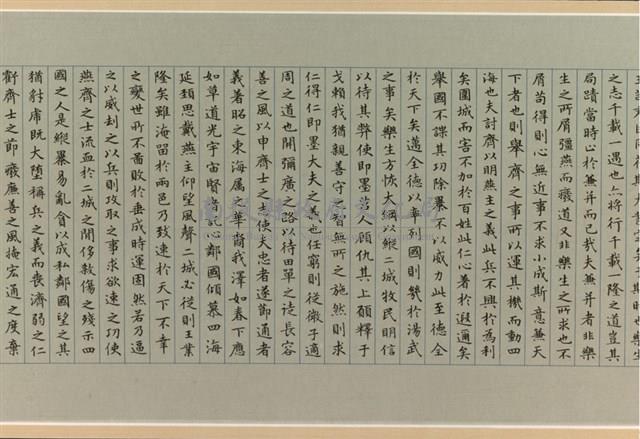 之志千載一遇也亦將行千載一隆之道豈其
局蹟當時止於兼并而已哉夫兼并者非樂
生之所屑彊燕而廢道又非樂生之所求也不
屑苟得則心無近事不求小成斯意兼天
下者也則舉齊之事所以運其機而動四
海也夫討齊以明燕主之義此兵不興於為利
矣圍城而害不加於百姓此仁心著於遐邇矣
舉國不謀其功除暴不以威力此至德全
於天下矣邁全德以率列國則幾於湯武
之事矣樂生方恢大綱以縱二城牧民明信
以待其弊使即墨莒人顧仇其上願釋干
戈賴我猶親善守之智無所之施然則求
仁得仁即墨大夫之義也任窮則從微子適
周之道也開彌廣之路以待田單之徒長容
善之風以申齊士之志使夫忠者遂節通者
義著昭之東海屬之華裔我澤如春下應
如草道光宇宙賢者託心鄰國傾慕四海
延頸思戴燕主仰望風聲二城必從則王業
隆矣雖淹留於兩邑乃致速於天下不幸
之變世所不圖敗於垂成時運固然若乃逼
之以威劫之以兵則攻取之事求欲速之功使
燕齊之士流血於二城之間侈殺傷之殘示四
國之人是縱暴易亂貪以成私鄰國望之其
猶豺虎既大墮稱兵之義而喪濟弱之仁
虧齊士之節廢廉善之風掩宏通之度棄